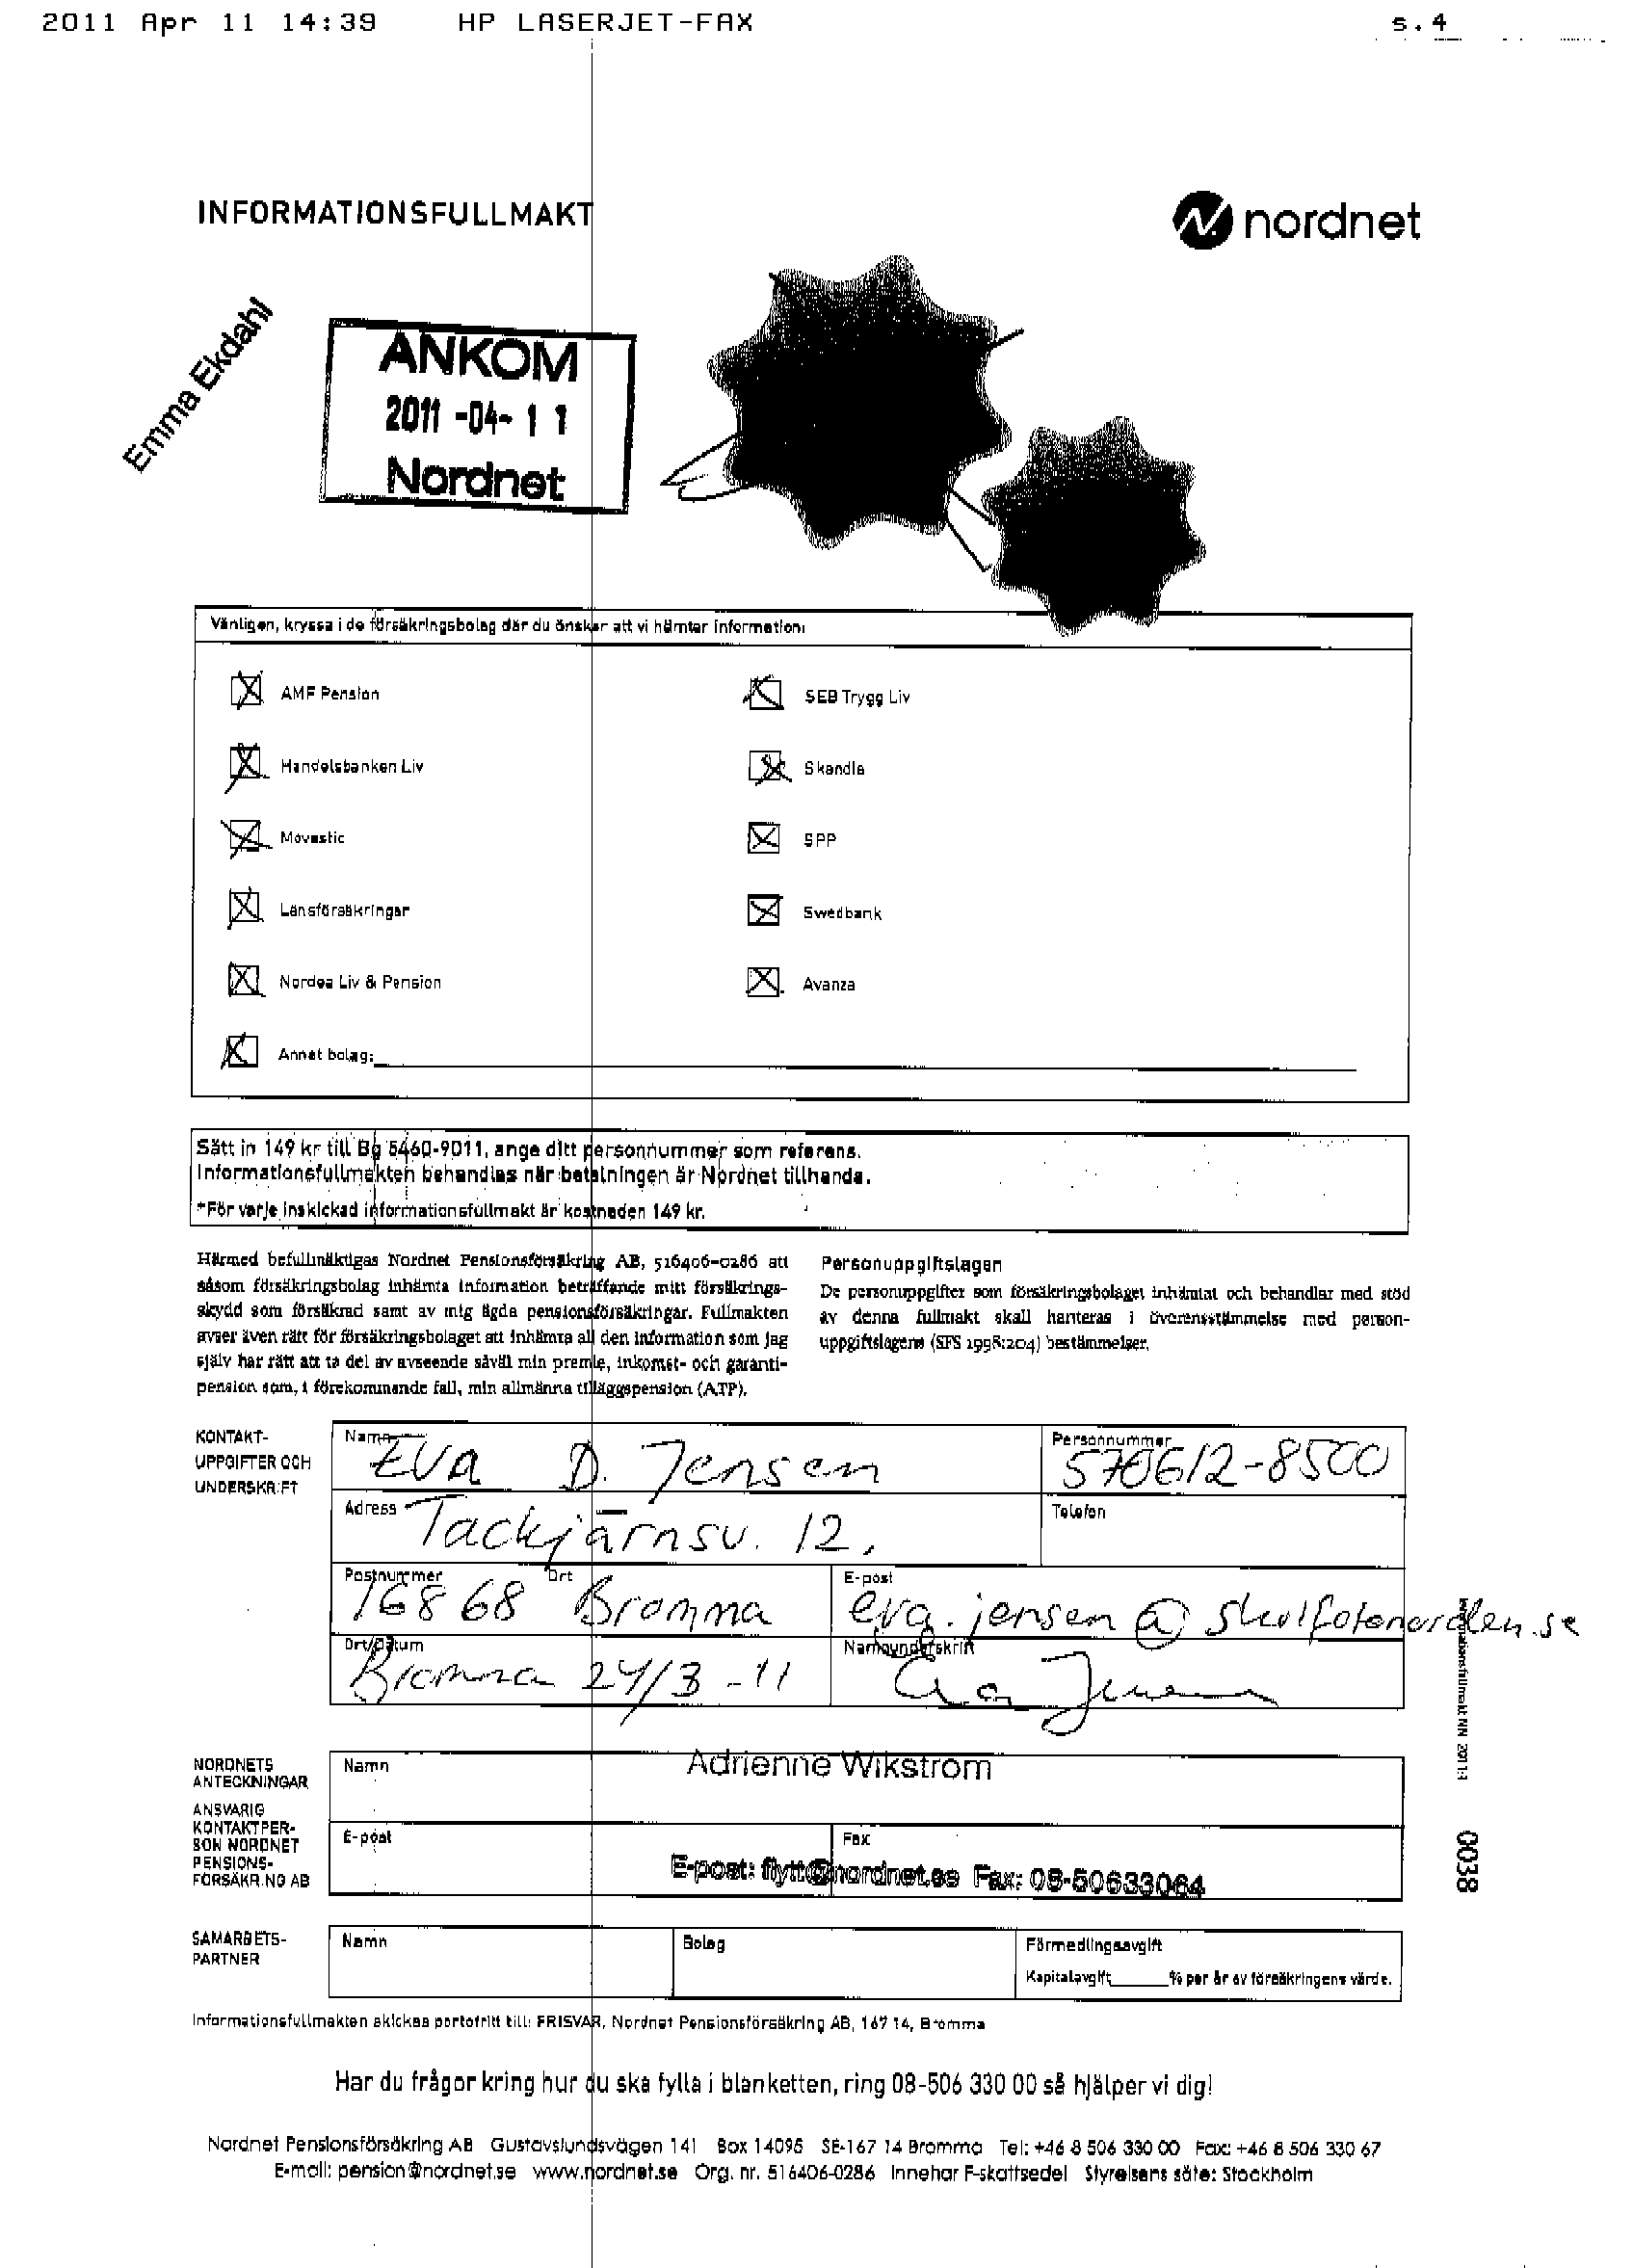 2011 Apr 11 14:39 HP LASERJET-FAX s.4
INFORMATIONSFULLMAKT
nordnet
Emma Ekdahl
ANKOM
2011 -04- 1 1
Nordnet
Vänligen, kryssa i de försäkringsbolag där du önskar att vi hämtar information:
AMF Pension
SEB Trygg Liv
Handelsbanken Liv
Skandia
Movestic
SPP
Länsförsäkringar
Swedbank
Nordea Liv & Pension
Avanza
Annat bolag:
Sätt in 149 kr till Bg 5460-9011, ange ditt personnummer som referens.
Informationsfullmakten behandlas när betalningen är Nordnet tillhanda.
*För varje inskickad informationsfullmakt är kostnaden 149 kr.
Härmed befullmäktigas Nordnet Pensionsförsäkring AB, 516406-0286 att
såsom försäkringsbolag inhämta information beträffande mitt försäkrings-
skydd som försäkrad samt av mig ägda pensionsförsäkringar. Fullmakten
avser även rätt för försäkringsbolaget att inhämta all den information som jag
själv har rätt att ta del av avseende såväl min premie, inkomst- och garanti-
pension som, i förekommande fall, min allmänna tilläggspension (ATP).
Personuppgiftslagen
De personuppgifter som försäkringsbolaget inhämtat och behandlar med stöd
av denna fullmakt skall hanteras i överensstämmelse med person-
uppgiftslagens (SFS 1998:204) bestämmelser.
KONTAKT-
UPPGIFTER OCH
UNDERSKRIFT
Namn
Eva D. Jensen
Personnummer
570612-8500
Adress
Tackjärnsv. 12,
Telefon
Postnummer
16868
Ort
Bromma
E-post
eva.jensen@skolfotonorden.se
Ort/Datum
Bromma 24/3 -11
Namnunderskrift
Eva Jensen
Informationsfullmakt NN 2011:1
0038
NORDNETS
ANTECKNINGAR
ANSVARIG
KONTAKTPER-
SON NORDNET
PENSIONS-
FÖRSÄKRING AB
Namn
Adrienne Wikström
E-post
Fax
E-post: flytt@nordnet.se Fax: 08-50633064
SAMARBETS-
PARTNER
Namn
Bolag
Förmedlingsavgift
Kapitalavgift % per år av försäkringens värde.
Informationsfullmakten skickas portofritt till: FRISVAR, Nordnet Pensionsförsäkring AB, 167 14, Bromma
Har du frågor kring hur du ska fylla i blanketten, ring 08-506 330 00 så hjälper vi dig!
Nordnet Pensionsförsäkring AB Gustavslundsvägen 141 Box 14095 SE-167 14 Bromma Tel: +46 8 506 330 00 Fax: +46 8 506 330 67
E-mail: pension@nordnet.se www.nordnet.se Org. nr. 516406-0286 Innehar F-skattsedel Styrelsens säte: Stockholm